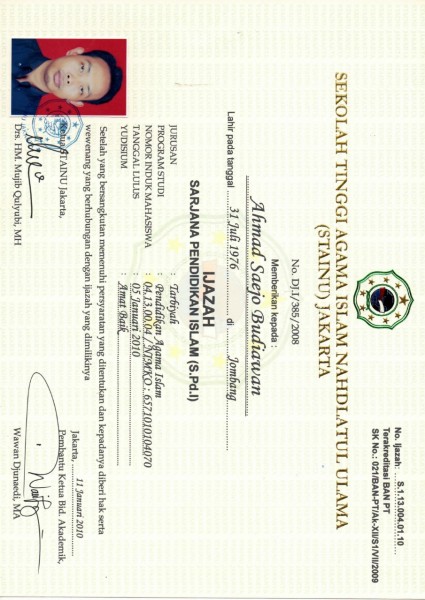 No. Ijazah: S.1.13.004.01.10
Terakreditasi BAN PT
SK No.: 021/BAN-PT/Ak-XII/S1/VII/2009
SEKOLAH TINGGI AGAMA ISLAM NAHDLATUL ULAMA
(STAINU) JAKARTA
No. DJ.I/385/2008
Memberikan kepada :
Ahmad Saejo Budiawan
Lahir pada tanggal 31 Juli 1976 di Jombang
IJAZAH
SARJANA PENDIDIKAN ISLAM (S.Pd.I)
JURUSAN : Tarbiyah
PROGRAM STUDI : Pendidikan Agama Islam
NOMOR INDUK MAHASISWA : 04.13.00.04 / NIMKO : 6571010104070
TANGGAL LULUS : 05 Januari 2010
YUDISIUM : Amat Baik
Setelah yang bersangkutan memenuhi persyaratan yang ditentukan dan kepadanya diberi hak serta
wewenang yang berhubungan dengan ijazah yang dimilikinya
Jakarta, 11 Januari 2010
STAINU Jakarta,
Pembantu Ketua Bid. Akademik,
Drs. HM. Mujib Qulyubi, MH
Wawan Djunaedi, MA